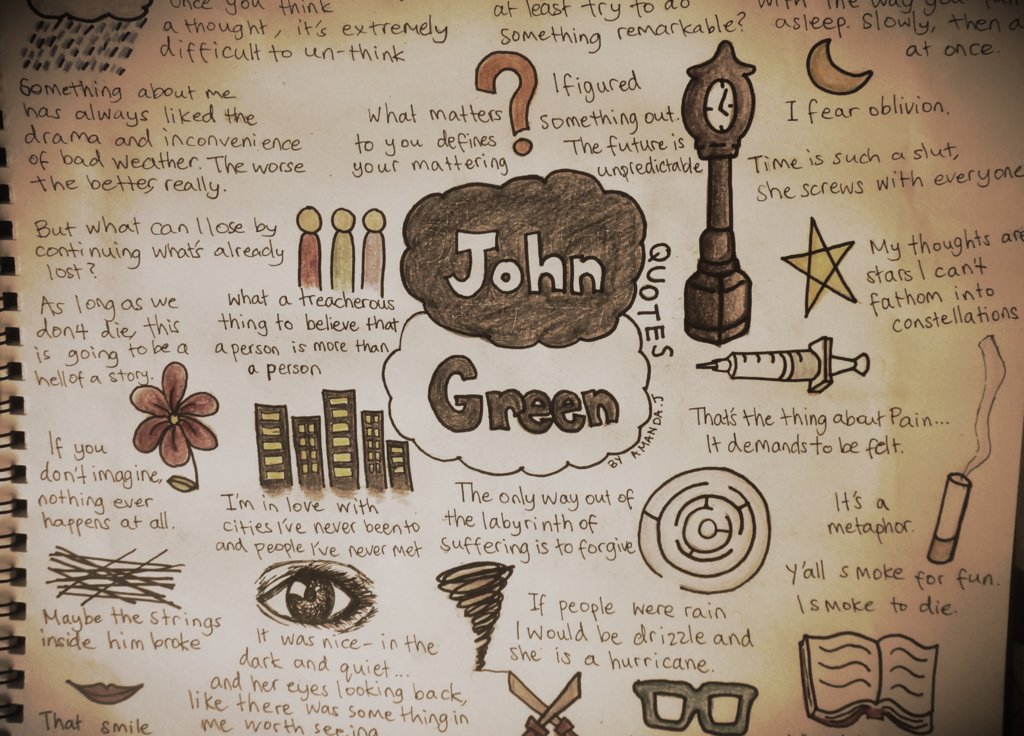 once you think
a thought, it's extremely
difficult to un-think
at least try to do
something remarkable?
with the way you fall
asleep. Slowly, then a
at once.
Something about me
has always liked the
drama and inconvenience
of bad weather. The worse
the better, really.
What matters
to you defines
your mattering
I figured
something out.
The future is
unpredictable
I fear oblivion.
Time is such a slut,
She screws with everyone
But what can I lose by
continuing what's already
lost?
What a treacherous
thing to believe that
a person is more than
a person
John
Green
QUOTES
BY AMANDA.J
My thoughts are
stars I can't
fathom into
constellations
As long as we
don't die, this
is going to be a
hell of a story.
That's the thing about Pain...
It demands to be felt.
If you
don't imagine,
nothing ever
happens at all.
I'm in love with
cities I've never been to
and people I've never met
The only way out of
the labyrinth of
suffering is to forgive
It's a
metaphor.
Y'all smoke for fun.
I smoke to die.
Maybe the strings
inside him broke
It was nice - in the
dark and quiet...
and her eyes looking back,
like there was something in
me worth seeing
If people were rain
I would be drizzle and
she is a hurricane.
That smile